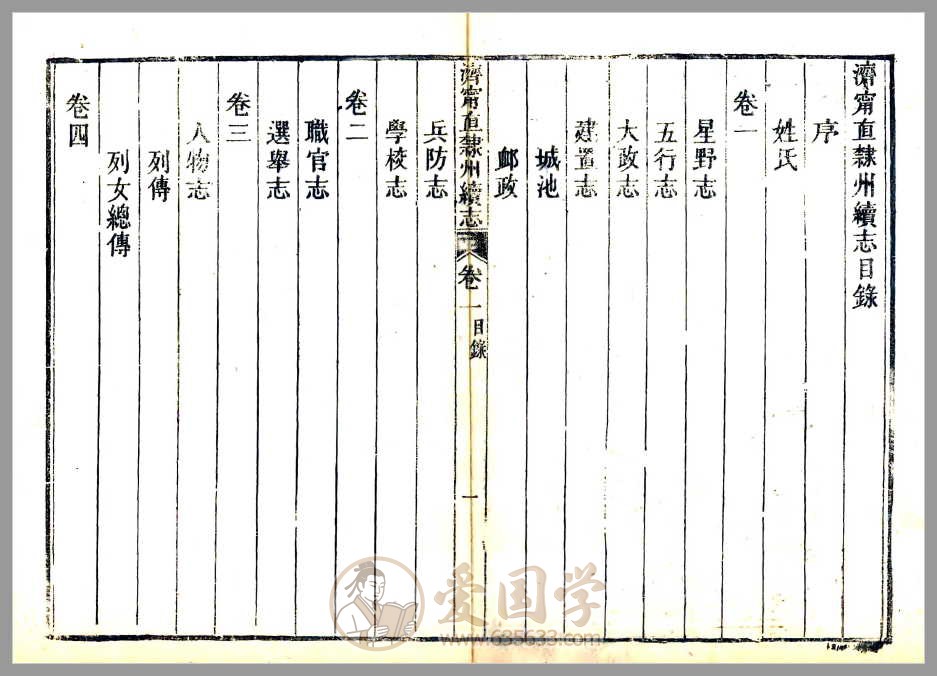 濟甯直隸州續志目錄
序
姓氏
卷一
星野志
五行志
大政志
建置志
城池
郵政
濟甯直隸州續志
卷一
目錄
一
兵防志
學校志
卷二
職官志
選舉志
卷三
人物志
列傳
列女總傳
卷四
爱国学
www.635633.com